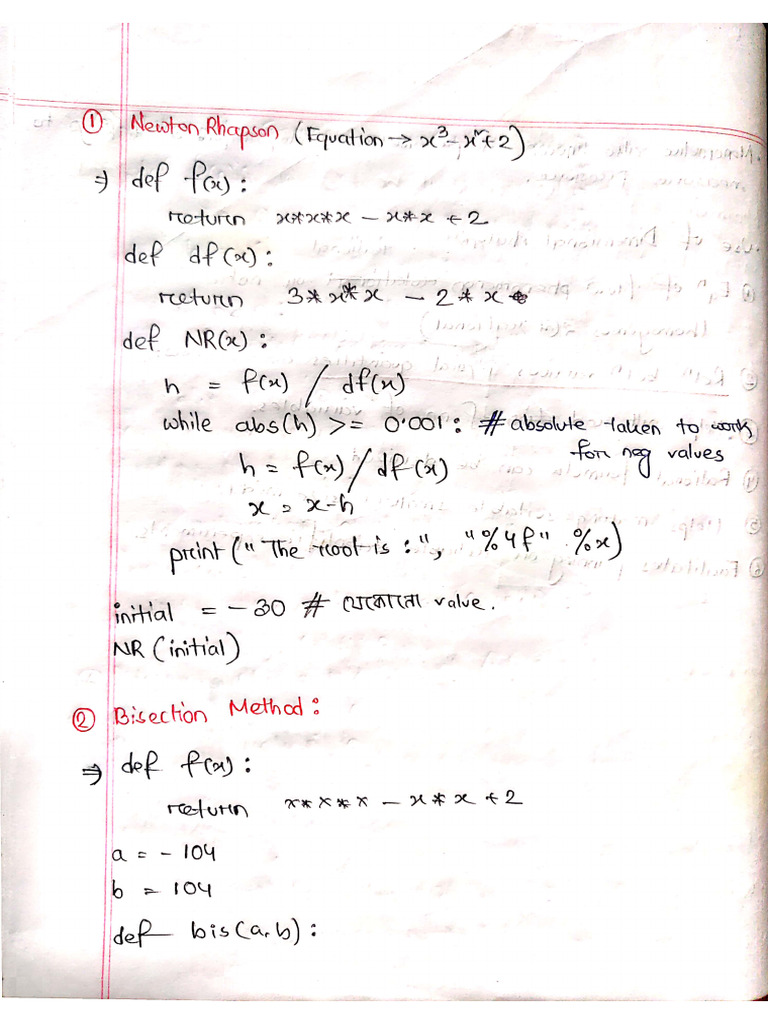 ① Newton Rhapson (Equation → x³ - x² + 2)
⇒ def f(x):
return x*x*x - x*x + 2
def df(x):
return 3*x*x - 2*x
def NR(x):
h = f(x) / df(x)
while abs(h) >= 0.001: # absolute taken to work
for neg values
h = f(x) / df(x)
x = x-h
print("The root is:", "%4f" %x)
initial = -30 # যেকোনো value.
NR(initial)
② Bisection Method:
⇒ def f(x):
return x*x*x - x*x + 2
a = - 104
b = 104
def bis(a,b):